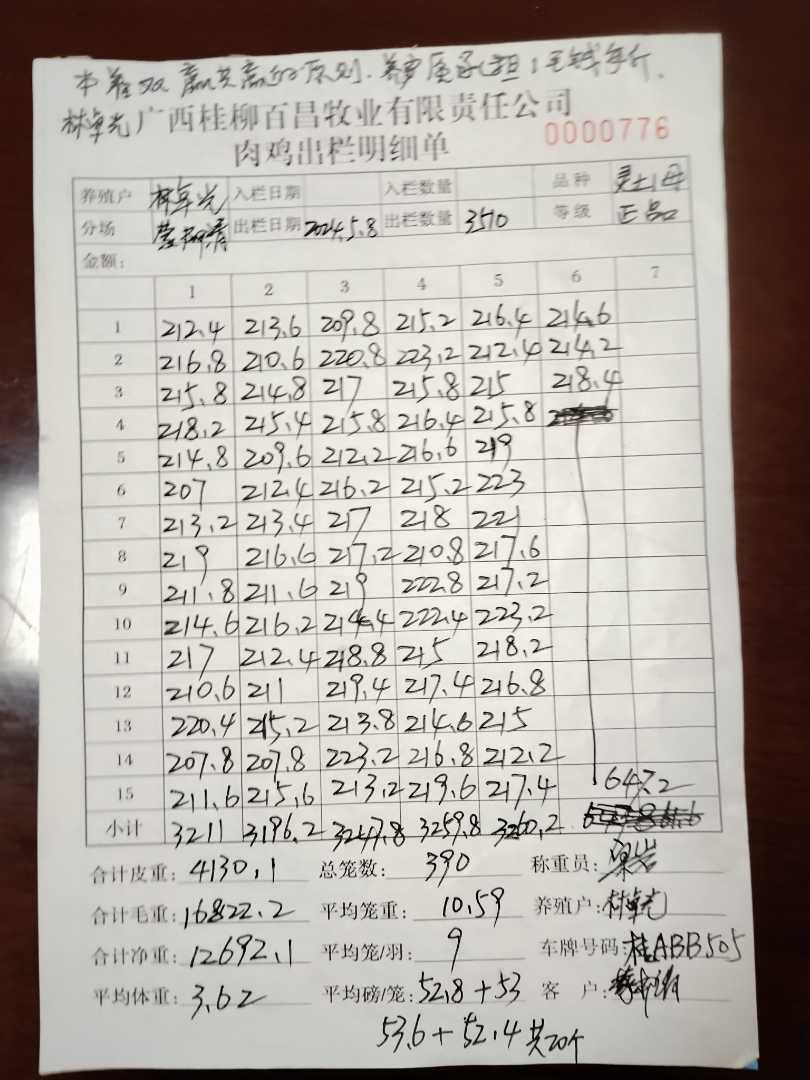 本着双赢共赢的原则.养户愿承担1毛钱每斤.
林卓光
广西桂柳百昌牧业有限责任公司
0000776
肉鸡出栏明细单
养殖户 林卓光 入栏日期 入栏数量 品种 灵土1母
分场 出栏日期 2024.5.8 出栏数量 3510 等级 正品
金额:
1 2 3 4 5 6 7
1 212.4 213.6 209.8 215.2 216.4 214.6
2 216.8 210.6 220.8 223.2 212.4 214.2
3 215.8 214.8 217 215.8 215 218.4
4 218.2 215.4 215.8 216.4 215.8
5 214.8 209.6 212.2 216.6 219
6 207 212.4 216.2 215.2 223
7 213.2 213.4 217 218 221
8 219 216.6 217.2 210.8 217.6
9 211.8 211.6 219 222.8 217.2
10 214.6 216.2 214.4 222.4 223.2
11 217 212.4 218.8 215 218.2
12 210.6 211 219.4 217.4 216.8
13 220.4 215.2 213.8 214.6 215
14 207.8 207.8 223.2 216.8 212.2
15 211.6 215.6 213.2 219.6 217.4 647.2
小计 3211 3196.2 3247.8 3259.8 3260.2
合计皮重: 4130.1 总笼数: 390 称重员:
合计毛重: 16822.2 平均笼重: 10.59 养殖户: 林卓光
合计净重: 12692.1 平均笼/羽: 9 车牌号码: 桂ABB505
平均体重: 3.62 平均磅/笼: 52.8+53 客 户:
53.6+52.4 共20个